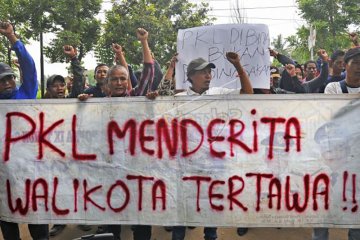 PKL DIBINA
BUKAN
PKL MENDERITA
WALIKOTA TERTAWA !!